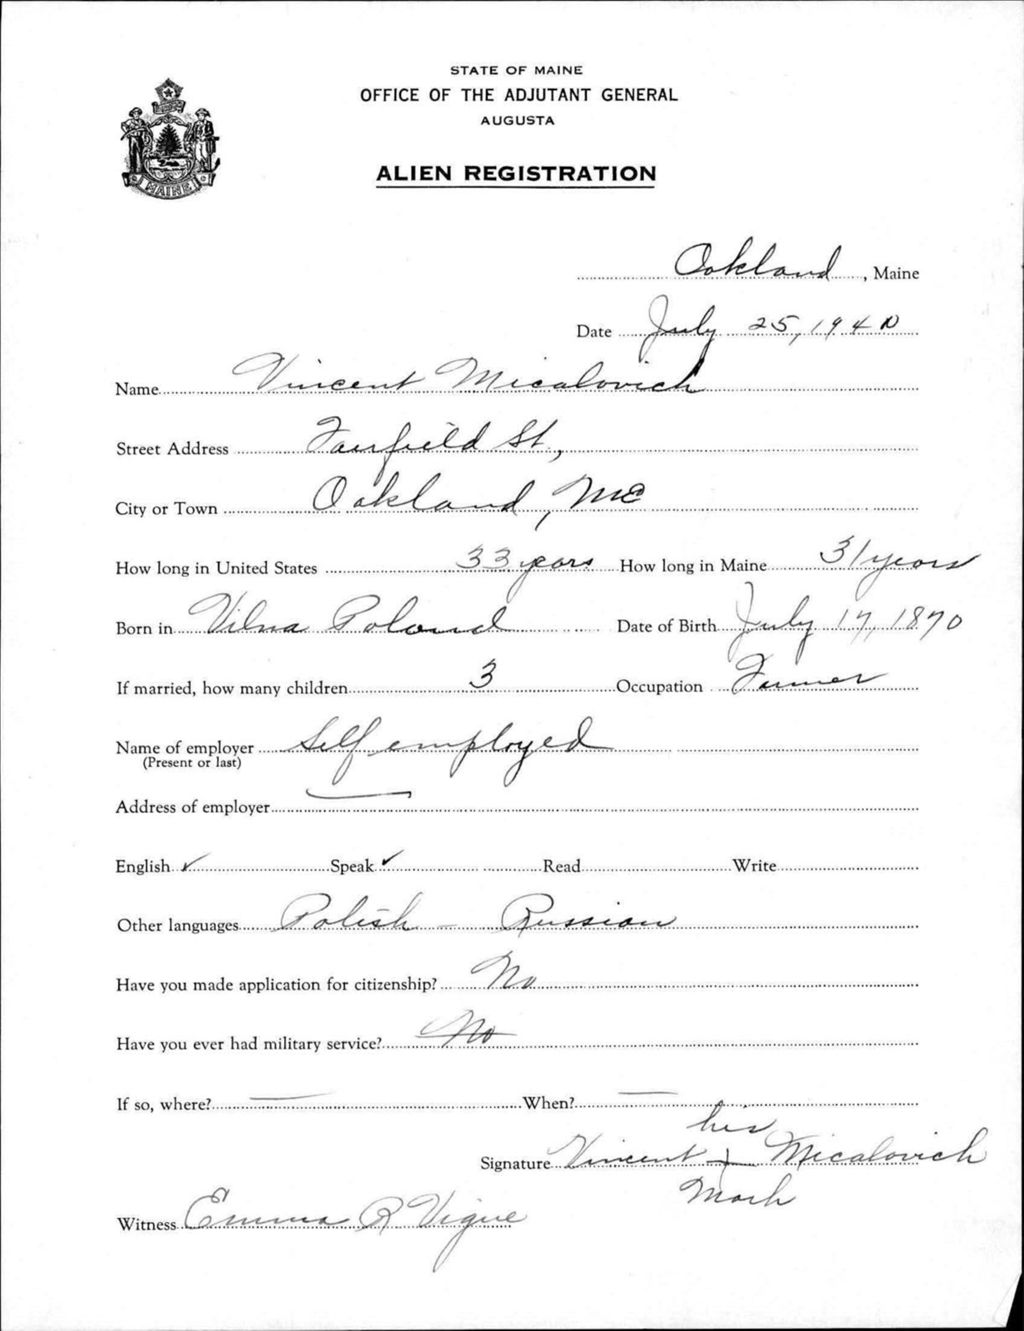 STATE OF MAINE
OFFICE OF THE ADJUTANT GENERAL
AUGUSTA
ALIEN REGISTRATION
MAINE
Oakland, Maine
Date July 25, 1940
Name Vincent Micalovich
Street Address Fairfield St,
City or Town Oakland, Me
How long in United States 33 years How long in Maine 31 years
Born in Vilna Poland Date of Birth July 17, 1870
If married, how many children 3 Occupation Farmer
Name of employer Self employed
(Present or last)
Address of employer —
English ✓ Speak ✓ Read Write
Other languages Polish – Russian
Have you made application for citizenship? No
Have you ever had military service? No
If so, where? — When? —
his
Signature Vincent + Micalovich
Mark
Witness Emma R Vigue